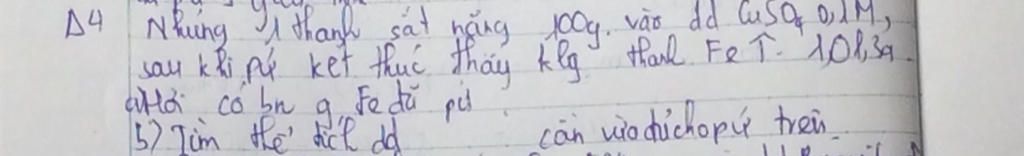 Δ4 Nhúng 1 thanh sắt nặng 100g. vào dd CuSO4 0,1M,
sau khi pứ kết thúc thấy klg thanh Fe ↑. 101,3g.
a) Hỏi có bn g Fe dã pứ.
b) Tìm thể tích dd cần vừa đủ cho pứ trên